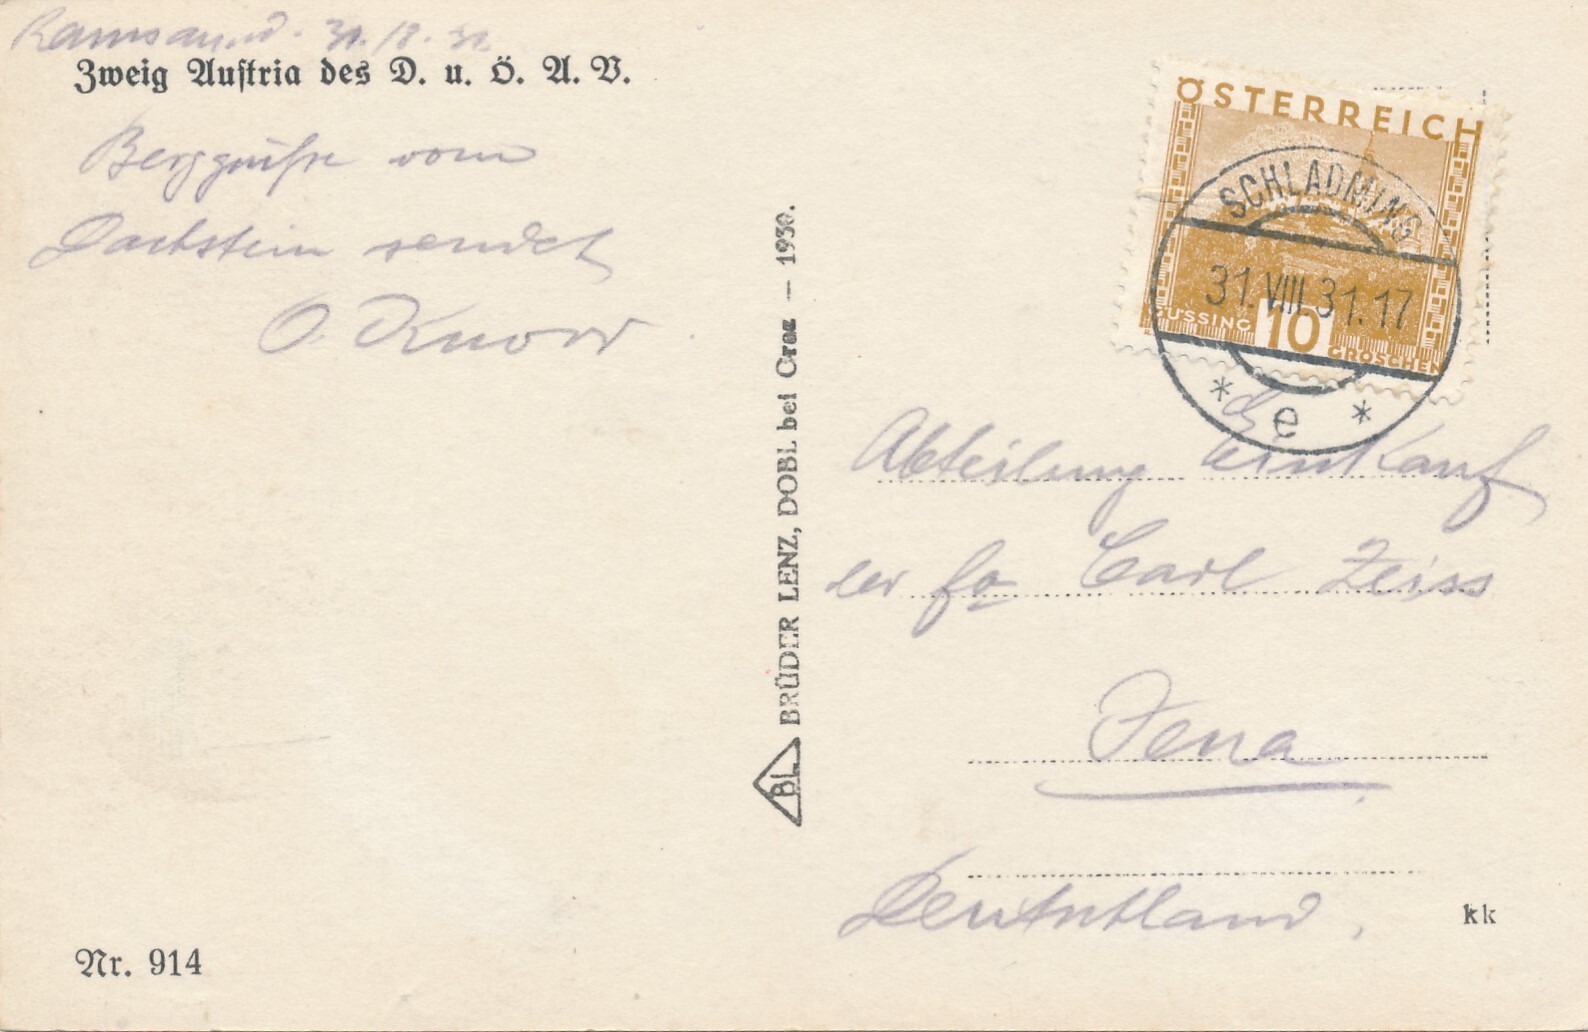 31./8. 31.
Zweig Austria des D. u. Ö. A. V.
Berggrüße vom
Dachstein sendet
O.
Nr. 914
BL BRÜDER LENZ, DOBL bei Graz — 1930.
ÖSTERREICH
SCHLADMING
31.VIII.31.17
GÜSSING 10 GROSCHEN
* e *
Abteilung Einkauf
der Fa Carl Zeiss
Jena
Deutschland.
kk